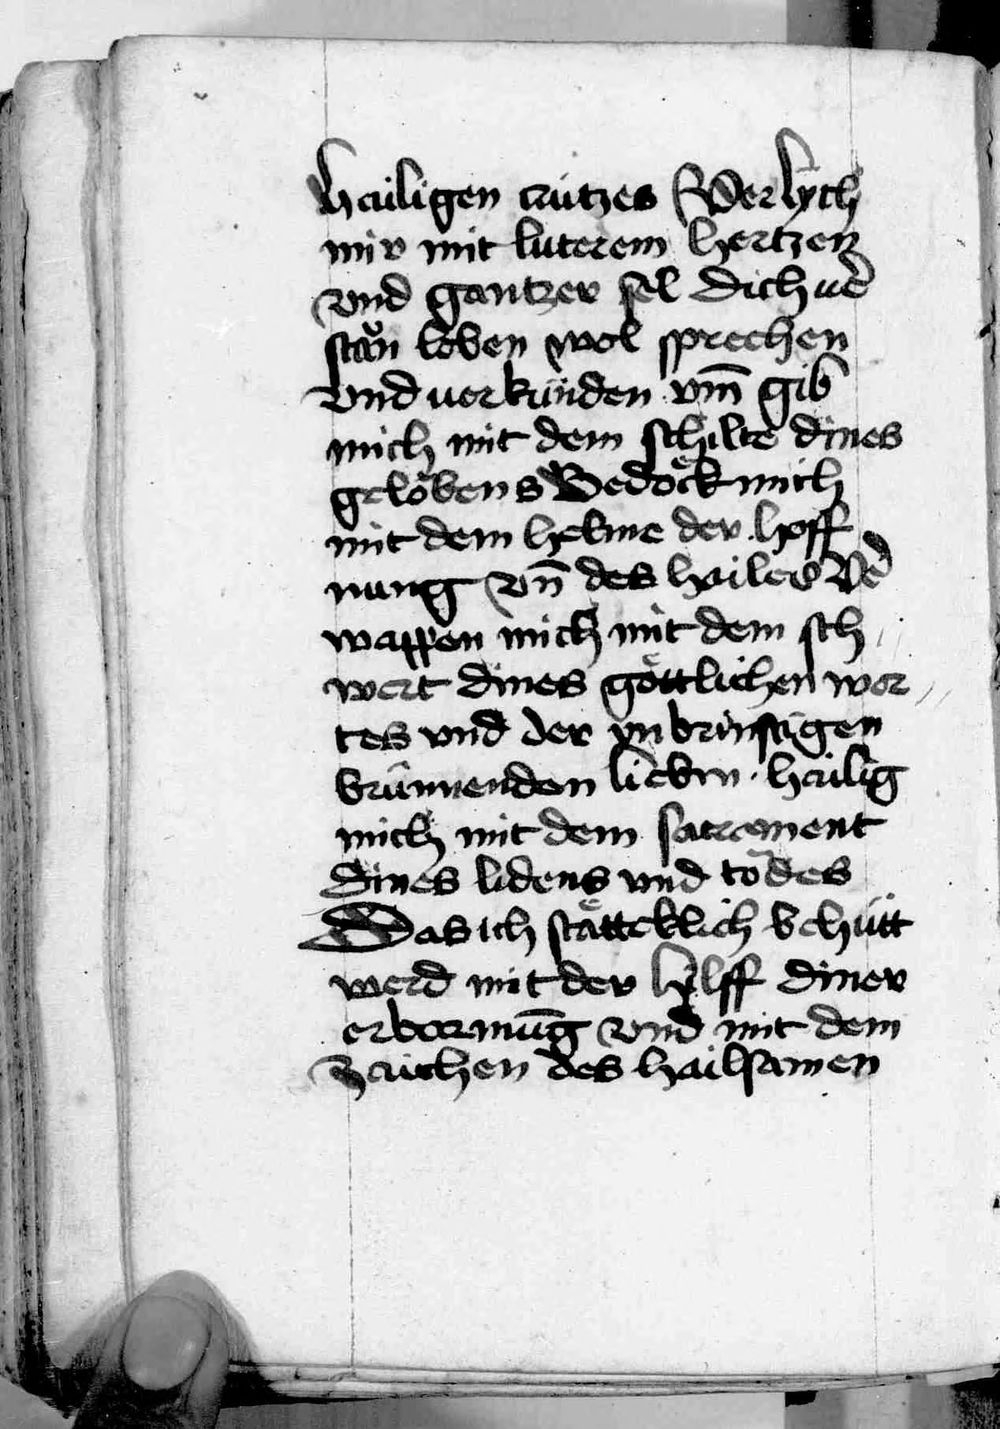 hailigen crützes Verlych
mir mit luterem hertzen
vnd gantzer sel dich ue͛
stān loben wol sprechen
vnd uerkünden vm̄ gib
mich mit dem schilte dines
gelöbens Bedöck mich
mit dem helme der hoff
nung vn̄ des hailes Ve͛
wappen mich mit dem sch
wert dines göttlichen wor
tes vnd der ynbrünstigen
brünnenden liebin · hailig
mich mit dem sacrament
dines lidens vnd todes
Das ich stätteklich behütt
werd mit der hylff diner
erbarmūg vnd mit dem
zaichen des hailsamen